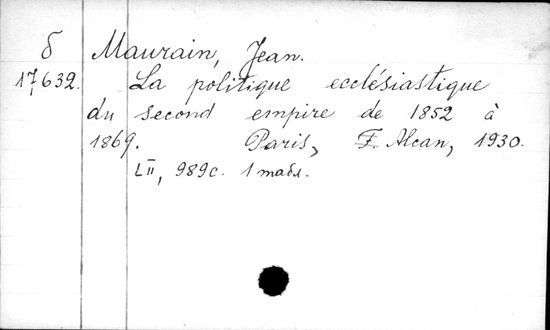 δ Maurain, Jean.
17,632. La politique ecclésiastique
du second empire de 1852 à
1869. Paris, F. Alcan, 1930.
LII, 989 c. 1 табл.